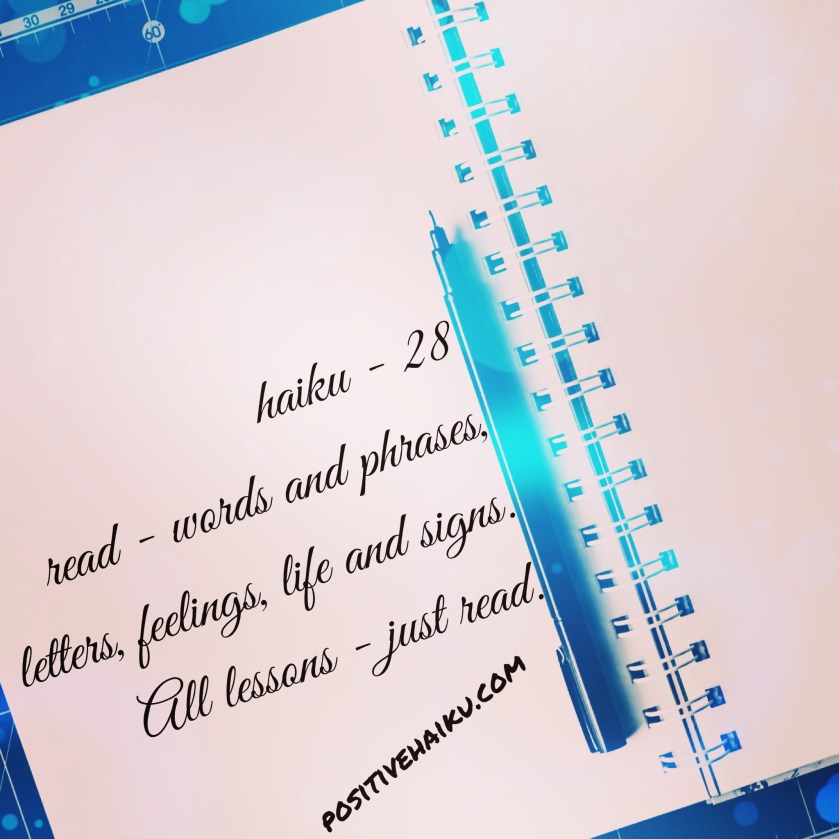 30 29
60°
haiku - 28
read - words and phrases,
letters, feelings, life and signs.
All lessons - just read.
positivehaiku.com